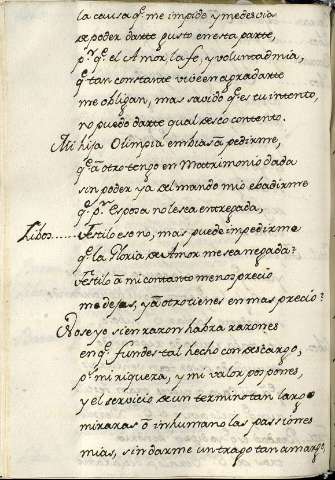 la causa q.e me impide, y me desvia
de poder darte gusto en esta parte,
p.r q.e el Amor la fe, y voluntad mia,
q.e tan constante vive en agradarte
me obligan, mas savido q.e es tu intento,
no puedo darte qual deseo contento.
Mi hija Olimpia embias à pedirme,
q.e à otro tengo en Matrimonio dada
sin poder ya del mando mio evadirme
q.e p.r Esposa no le sea entregada,
Libos...... Vestilo eso no, mas puede impedirme
q.e la Gloria de Amor me sea negada?
Vestilo à mi con tanto menosprecio
me dejas, y à otro tienes en mas precio?
No se yo si en razon habra razones
en q.e fundes tal hecho con descargo,
p.s mi riqueza, y mi valor pospones,
y el servicio de un termino tan largo
miraras ò inhumano las passiones
mias, sin darme un trago tan amargo,